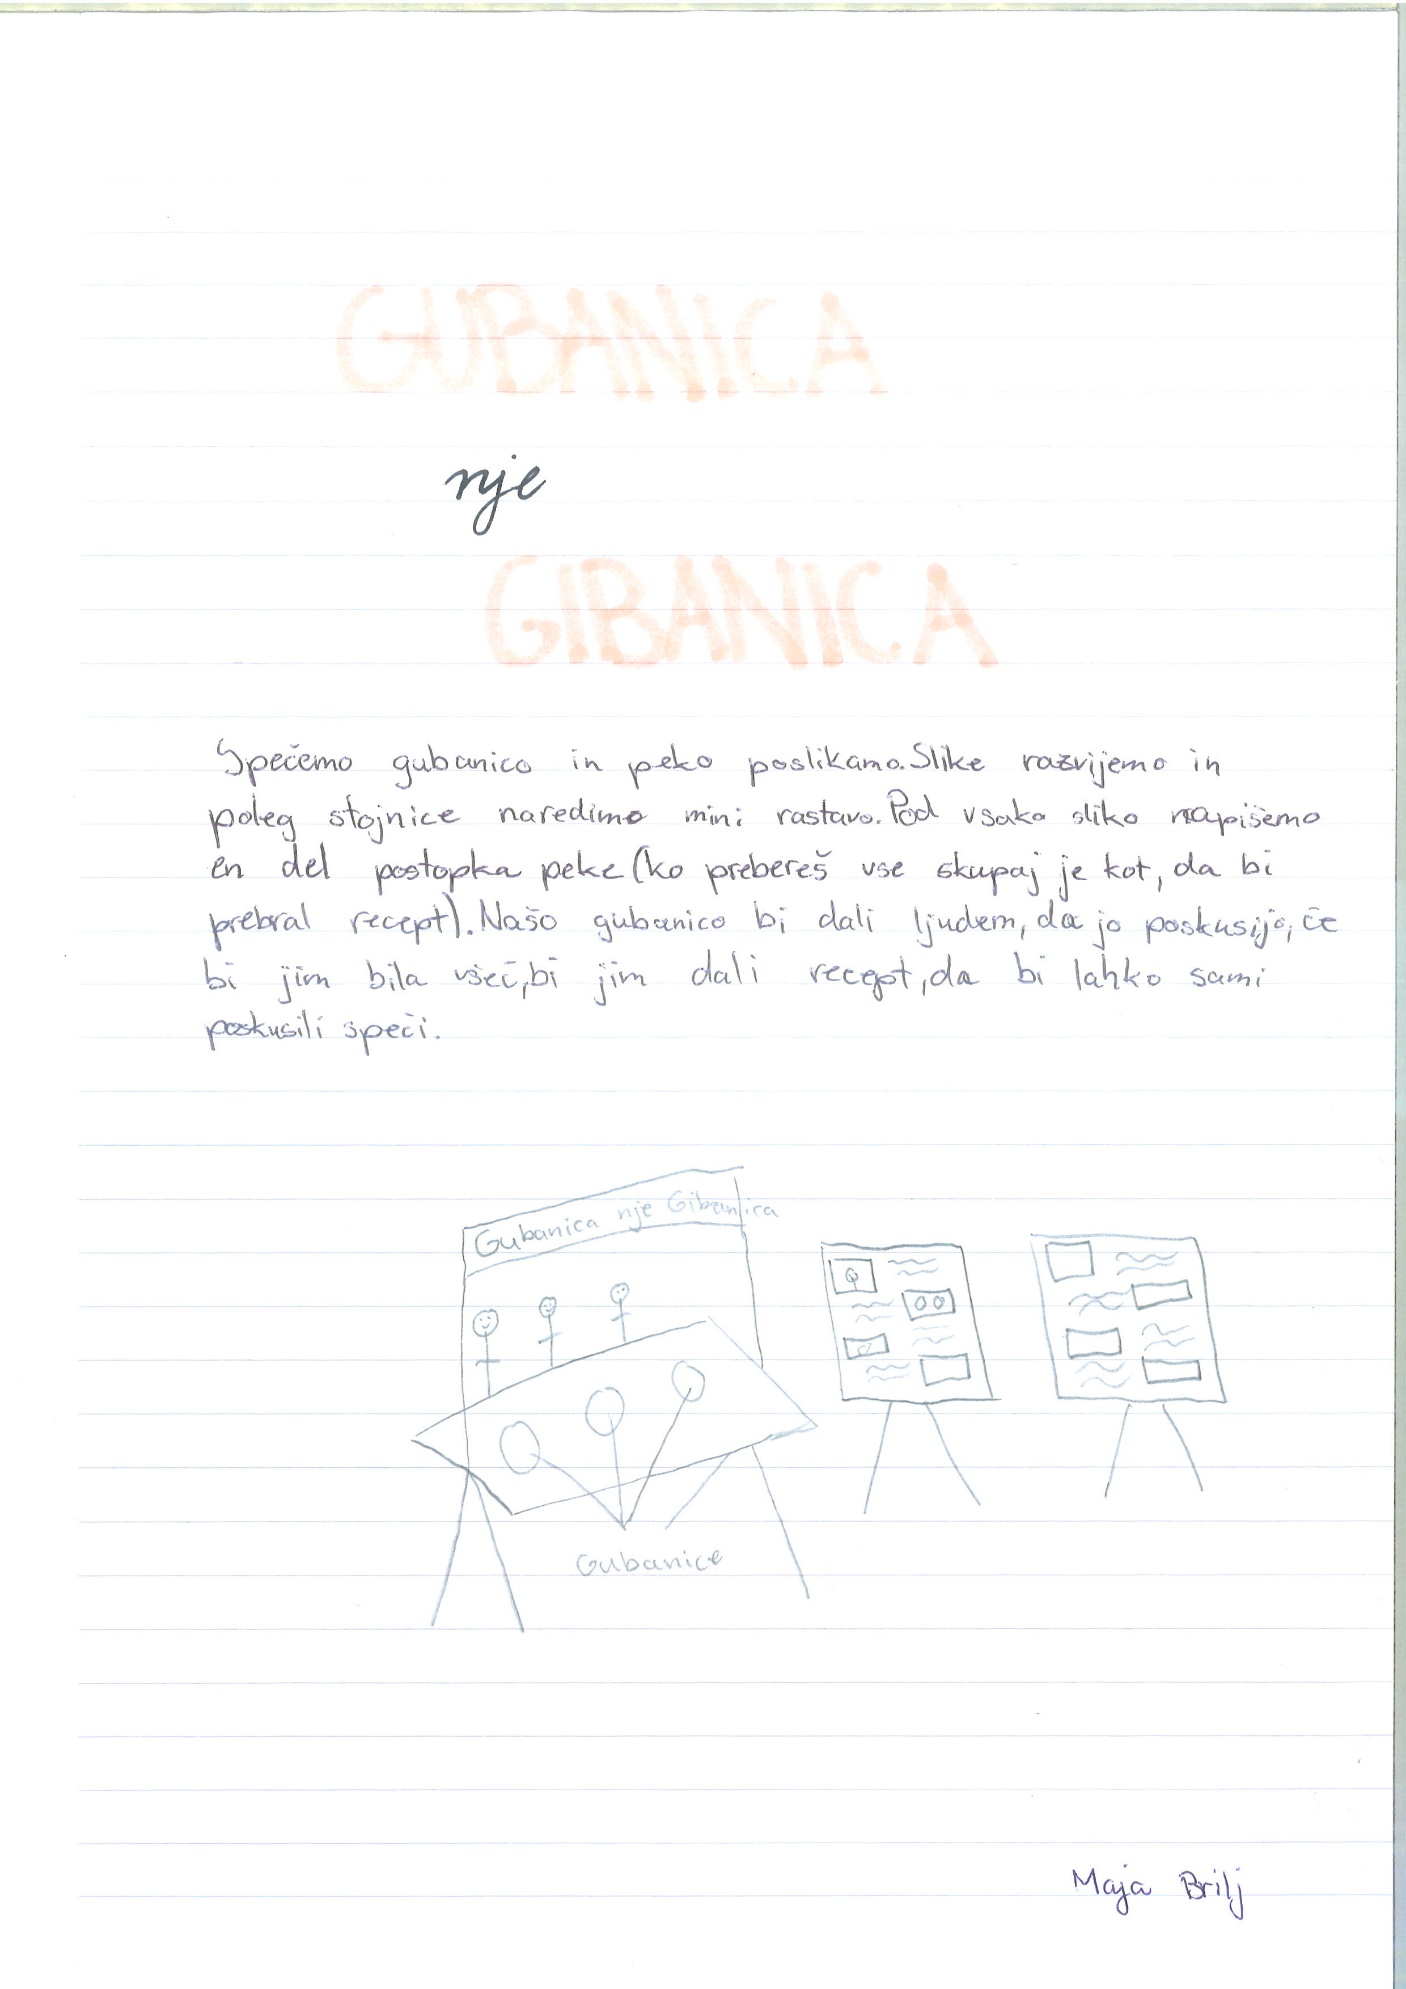 GUBANICA
nje
GIBANICA
Spečemo gubanico in peko poslikamo. Slike razvijemo in
poleg stojnice naredimo mini rastavo. Pod vsako sliko napišemo
en del postopka peke (ko prebereš vse skupaj je kot, da bi
prebral recept). Našo gubanico bi dali ljudem, da jo poskusijo, če
bi jim bila všeč, bi jim dali recept, da bi lahko sami
poskusili speči.
Gubanica nje Gibanica
Gubanice
Maja Brilj